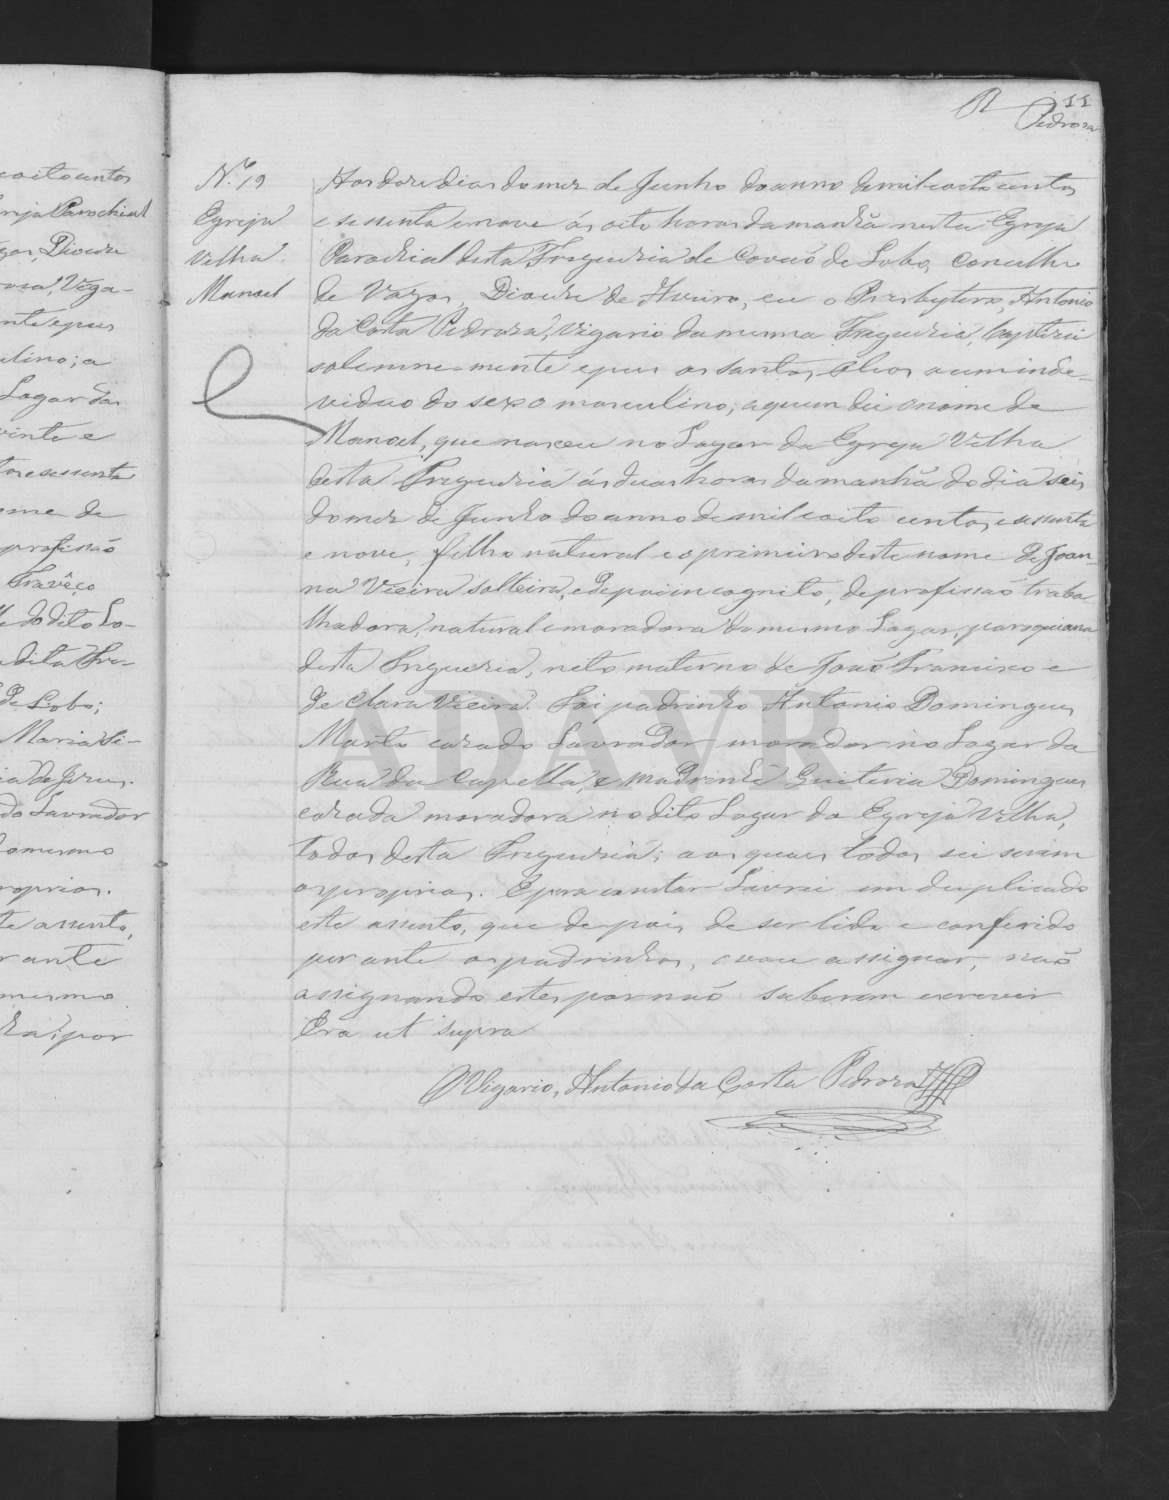 eoitocentos
Parochial
Diocese
Vaga-
culino; a
Lugar da
vinte e
tos e sessenta
ome de
profissão
Travêço
do dito Lu-
dita Fre-
de Lobo;
Maria
de Jesus.
do Lavrador
do mesmo
proprios.
te assento,
rante
mesmo
por
R 11
Pedroza
N.º 19
Egreja
Velha.
Manoel
Aos doze dias do mez de Junho do anno de mil e oito centos
e sessenta e nove ás oito horas da manhã nesta Egreja
Parochial desta Freguezia de Covaõ de Lobo, concelho
de Vagos, Diocese de Aveiro, eu o Presbytero, Antonio
da Costa Pedroza, Vigario da mesma Freguezia, baptizei
solemne-mente e puz os santos oleos a um inde-
viduo do sexo masculino; a quem dei o nome de
Manoel, que nasceu no Lugar da Egreja Velha
desta Freguezia ás duas horas da manhã do dia seis
do mez de Junho do anno de mil e oito centos, e sessenta
e nove, filho natural e o primeiro deste nome de Joan-
na Vieira solteira, e de pai incognito, de profissaõ traba-
lhadora, natural e moradora do mesmo Lugar, paroquiana
desta Freguezia, neto materno de Joaõ Francisco e
de Clara Vieira. Foi padrinho Antonio Domingues
Marto cazado Lavrador morador no Lugar da
Rua da Capella, e madrinha Quiteria Domingues
cazada moradora no dito Lugar da Egreja Velha,
todos desta Freguezia; aos quaes todos sei serem
os proprios. E para constar Lavrei em duplicado
este assento, que de pois de ser lido e conferido
perante os padrinhos, o vou assignar, naõ
assignando estes por naõ saberem escrever
Era ut supra
O Vigario, Antonio da Costa Pedroza
ADAVR